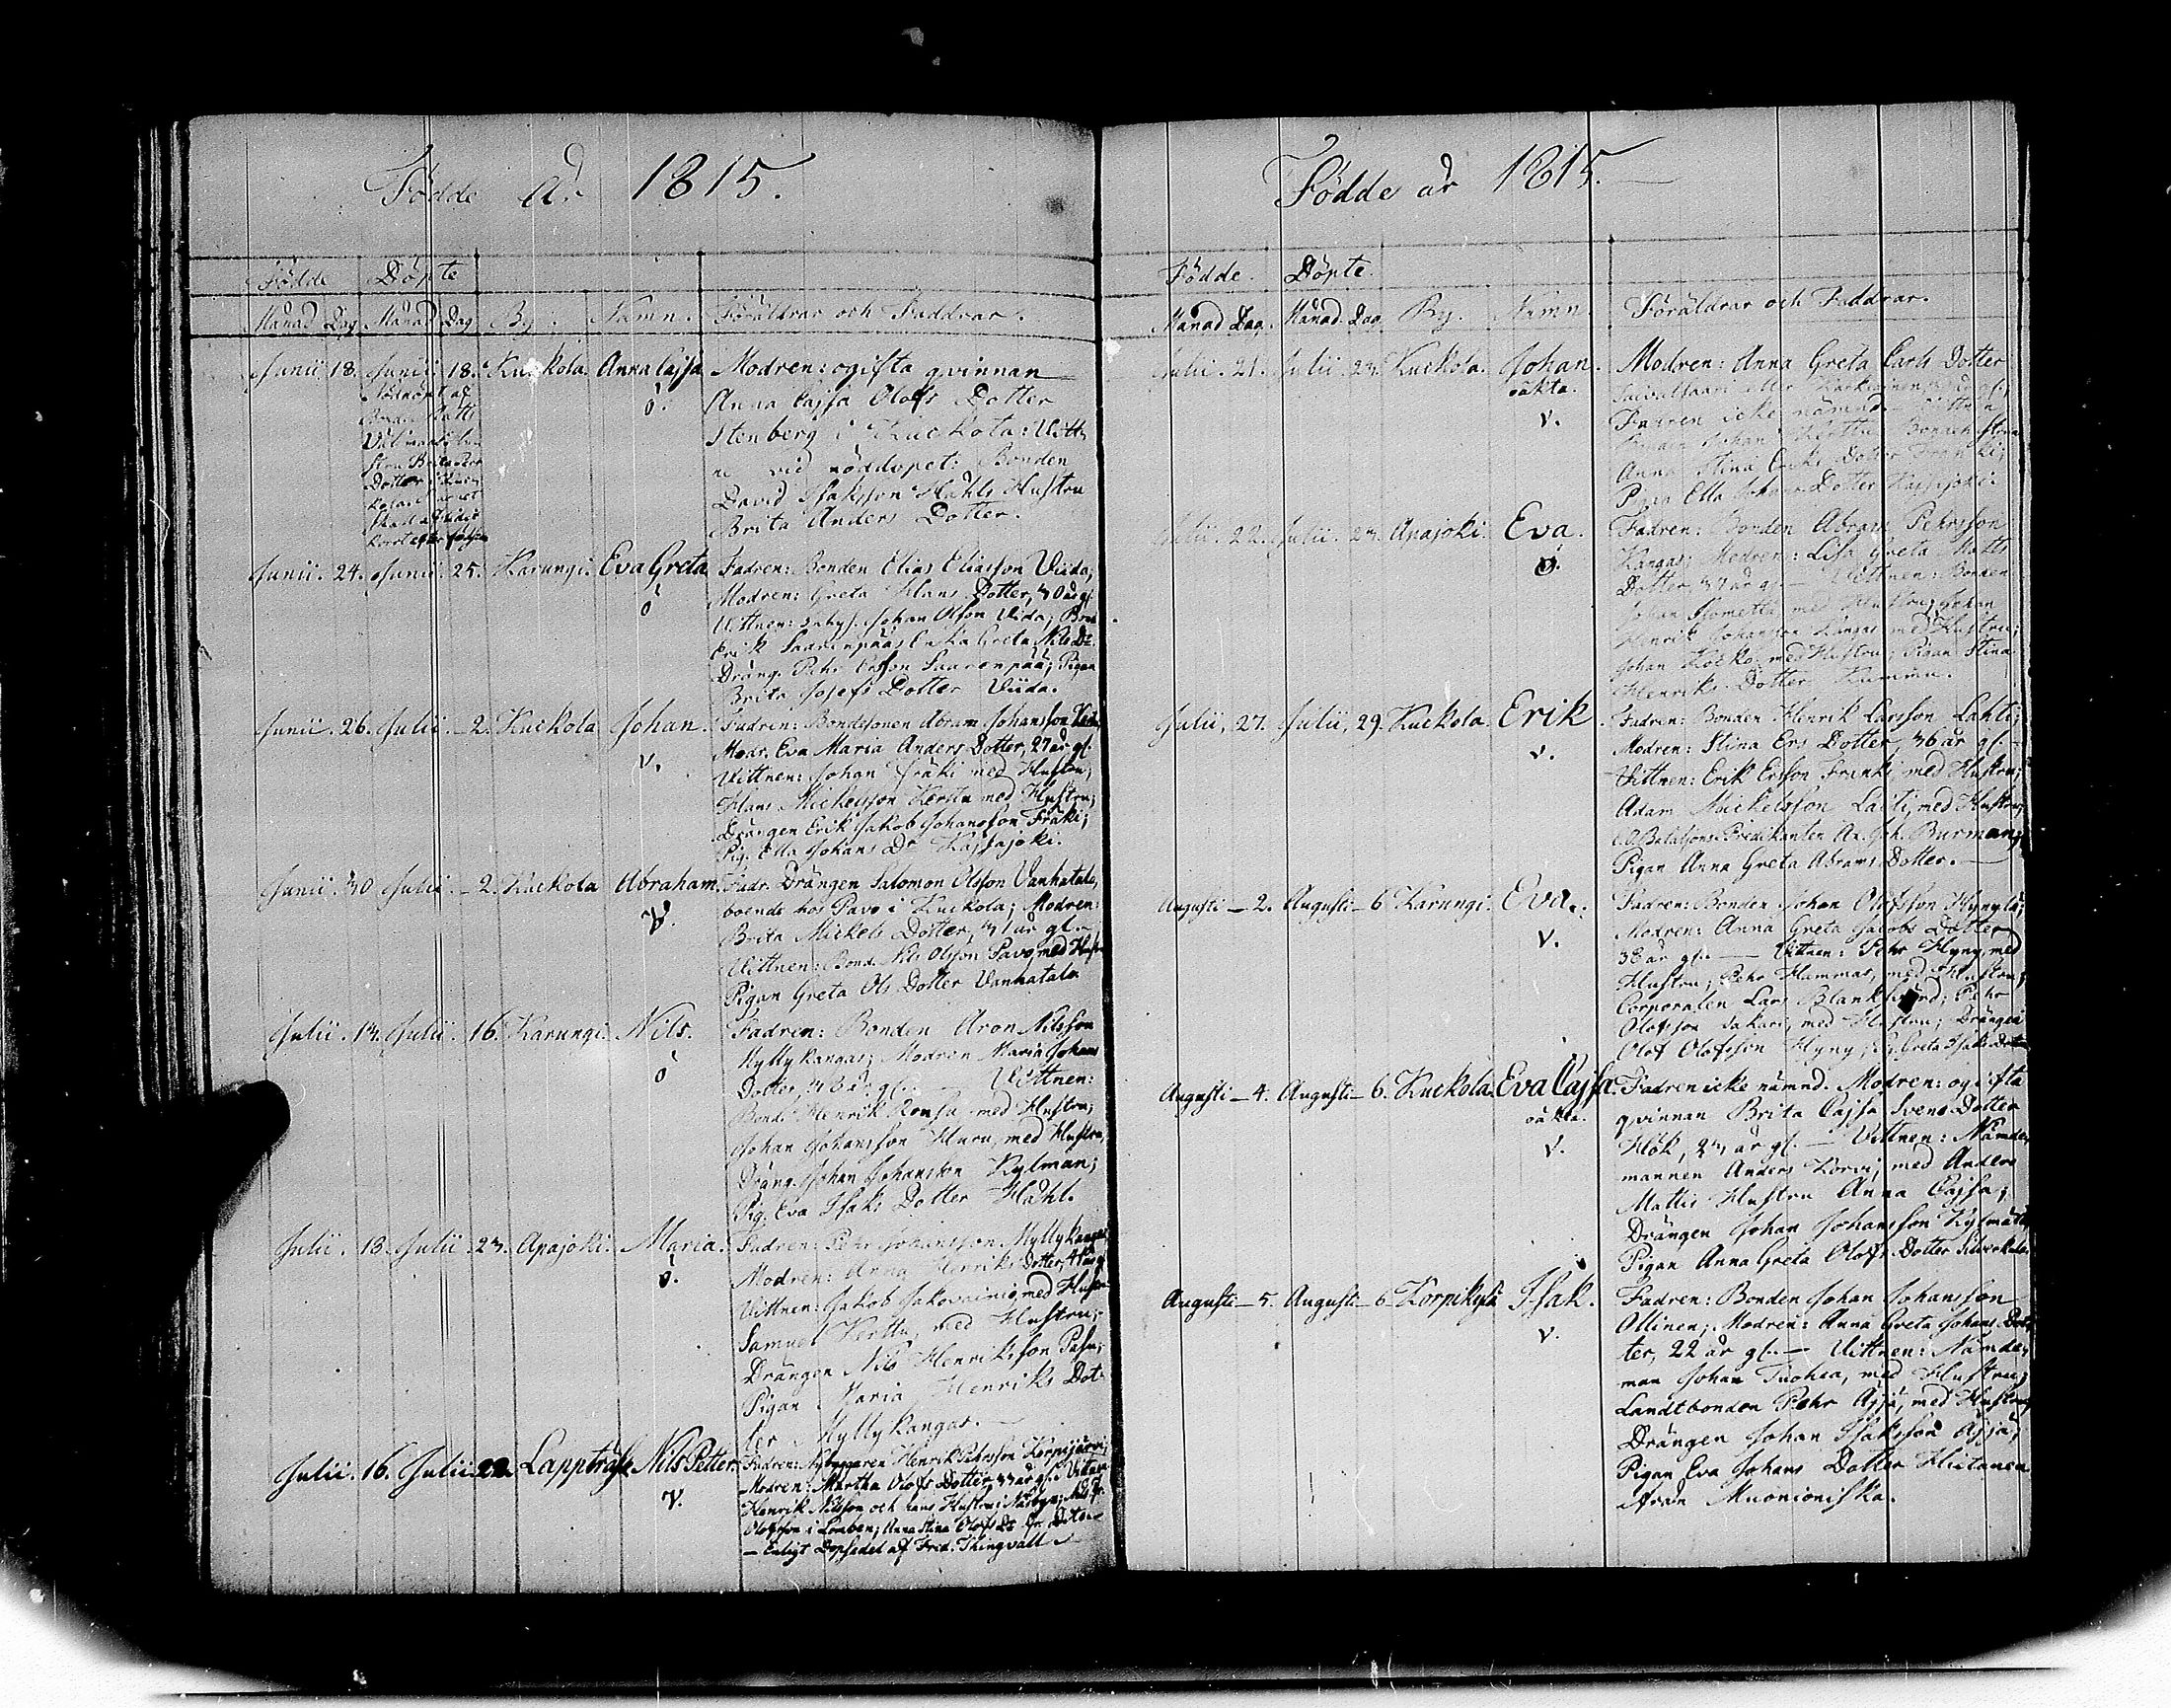 Födde År 1815.
Födde Döpte
Månad Dag. Månad Dag By. Namn. Föräldrar och Faddrar.
Junii 18. Junii 18. Kuckola Anna Cajsa Modren: ogifta qvinnan
Nöddöpt af
ö. Anna Cajsa Olofs Dotter
Stenberg i Kuckola: Vitt-
ne vid nöddopet: Bonden
Dotter i Kuc-
David Isaksson Hahls Hustru
Brita Anders Dotter.
Junii. 24. Junii. 25. Karungi. Eva Greta Fadren: Bonden Elias Eliasson Viida;
ö Modren: Greta Hans Dotter, 30 år gl.
Vittnen: Johan Olsson Viida;
Erik Saarenpää Greta Nils Dr.
Dräng. Pehr Ersson Saarenpää; Pigan
Brita Josefs Dotter Viida.
Junii. 26. Julii. - 2. Kuckola Johan. Fadren: Bondesonen Abram Johansson
v. Modr. Eva Maria Anders Dotter, 27 år gl.
Vittnen: Johan Fräki med Hustru;
Hans Mickelsson Kerttu med Hustru;
Drängen Erik Jakob Johansson Fräki;
Pig. Ella Johans Dr Kassajoki.
Junii. 30 Julii. - 2. Kuckola Abraham. Fadr. Drängen Salomon Olsson Vanhatalo,
boende hos Pavo i Kuckola; Modren:
v. Brita Mickels Dotter, 31 år gl. -
Vittnen: Bond. Nils Olsson Pavo, med Hustru
Pigan Greta Ols Dotter Vanhatalo
Julii. 13. Julii. 16. Karungi. Nils. Fadren: Bonden Aron Nilsson
ö Myllykangas; Modren Maria Johans
Dotter, 36 år gl. - Vittnen:
Bond. Henrik Rousa med Hustru;
Johan Johansson Huru, med Hustru,
Dräng. Johan Johansson Kylman;
Pig. Eva Isaks Dotter Hahl.
Julii. 13. Julii 23. Apajoki. Maria. Fadren: Pehr Johansson Myllykangas;
ö. Modren: Anna Henriks Dotter,
Vittnen: Jakob Jakovainio, med Hustru
Samuel Kerttu, med Hustru;
Drängen Nils Henriksson Pasu;
Pigan Maria Henriks Dot-
ter Myllykangas.
Julii. 16. Julii 22. Lappträsk Nils Petter. Fadren: Nybyggaren Henrik Pehrsson Korpijärvi;
v. Modren: Martha Olofs Dotter, 33 år gl.
Henrik Nilsson och hans Hustru i Näsbyn;
Olofsson i Lomben; Anna Stina Olofs Dr
- Enligt Dopsedel af Fred. Thingvall
Födde år 1815.
Födde. Döpte.
Månad Dag. Månad Dag By. Namn. Föräldrar och Faddrar.
Julii. 21. Julii. 23. Kuckola. Johan. Modren: Anna Greta Carls Dotter
oäkta.
v. Fadren icke nämnd.
Anna Stina Eriks Dotter
Pigan Ella Johans Dotter Kassajoki.
Julii. 22. Julii. 23. Apajoki. Eva. Fadren: Bonden Abram Pehrsson
ö. Kangas; Modren: Lisa Greta Matts
Dotter, 37 år gl. - Vittnen: Bonden
Johan Sjometta med Hustru; Johan
Henrik Johansson Kangas med Hustru;
Johan Kocko med Hustru; Pigan Stina
Henriks Dotter Kummu.
Julii, 27. Julii, 29. Kuckola. Erik. Fadren: Bonden Henrik Larsson Lahti;
v. Modren: Stina Ers Dotter, 36 år gl. -
Vittnen: Erik Ersson Franki, med Hustru;
Adam Mickelsson Laiti, med Hustru;
Bataljons Predikanten Ax. Joh. Burman;
Pigan Anna Greta Abrams Dotter. -
Augusti - 2. Augusti - 6 Karungi. Eva. Fadren: Bonden Johan Olofsson Hyny;
v. Modren: Anna Greta Jacobs Dotter
38 år gl. - Vittnen: Pehr Hyny, med
Hustru; Pehr Hammar, med Hustru;
Corporalen Lars Blanksvärd; Pehr
Olofsson Sakari, med Hustru; Drängen
Olof Olofsson Hyny; Greta Isaks Dotter
Augusti - 4. Augusti - 6. Kuckola. Eva Cajsa. Fadren icke nämnd. Modren: ogifta
oäkta. qvinnan Brita Cajsa Svens Dotter
v. Hök, 23 år gl. - Vittnen: Nämde-
mannen Anders Korvi, med Anders
Mattis Hustru Anna Cajsa;
Drängen Johan Johansson Kylmä
Pigan Anna Greta Olofs Dotter Silverkula
Augusti - 5. Augusti - 6. Korpikylä Isak. Fadren: Bonden Johan Johansson
v. Ollinen; Modren: Anna Greta Johans Dot-
ter, 22 år gl. - Vittnen: Nämde-
man Johan Tuohea, med Hustru;
Landtbonden Pehr Äijä, med Hustru;
Drängen Johan Isaksson Äijä;
Pigan Eva Johans Dotter Hietanen
från Muonioniska.